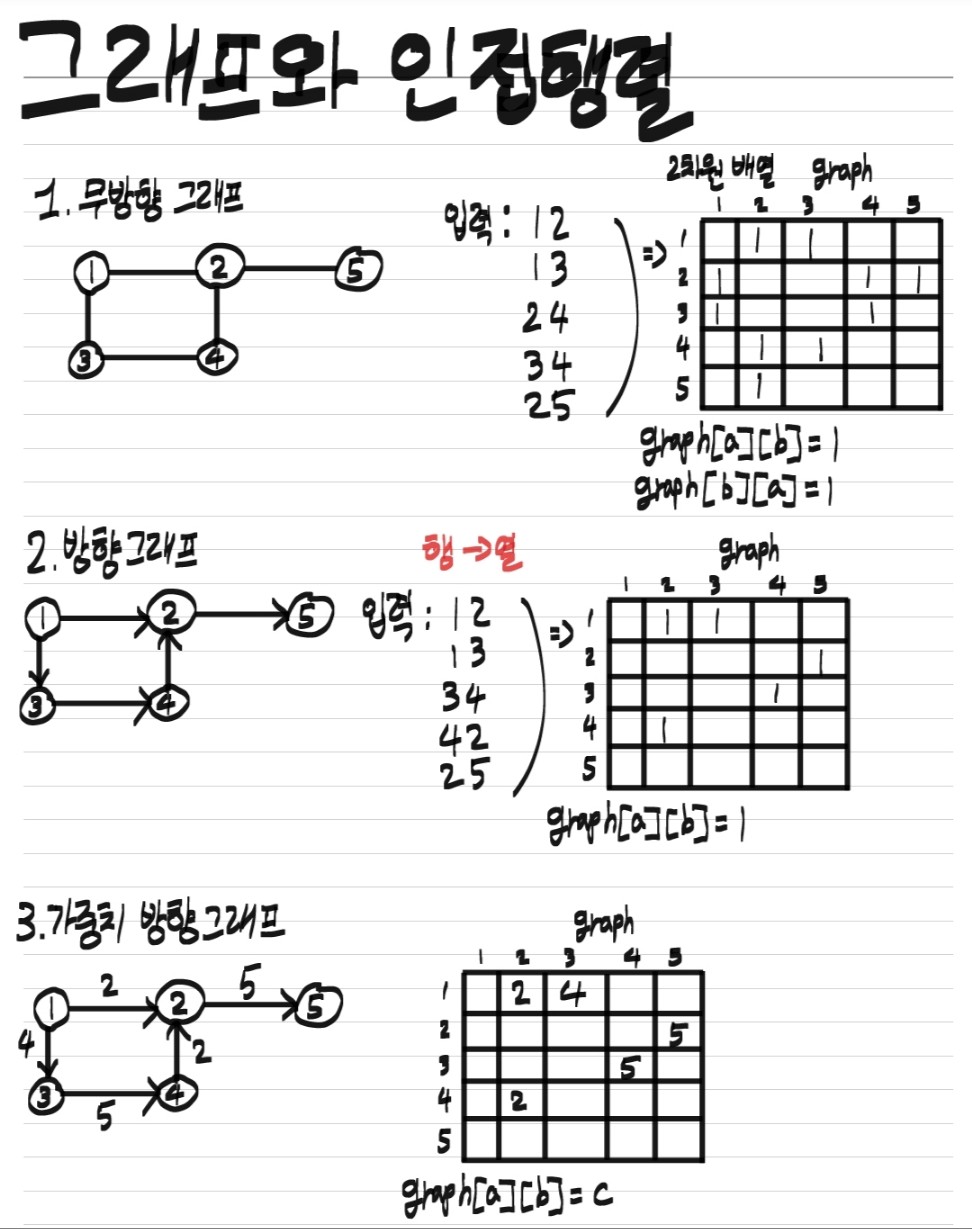 그래프와 인접행렬
1. 무방향 그래프
1 2 5
3 4
입력 : 1 2
1 3
2 4
3 4
2 5
=>
2차원 배열 graph
1 2 3 4 5
1 1 1
2 1 1 1
3 1 1
4 1 1
5 1
graph[a][b] = 1
graph[b][a] = 1
2. 방향그래프
1 2 5
3 4
행 →열
입력 : 1 2
1 3
3 4
4 2
2 5
=>
graph
1 2 3 4 5
1 1 1
2 1
3 1
4 1
5
graph[a][b] = 1
3. 가중치 방향그래프
2 5
1 2 5
4 2
3 4
5
graph
1 2 3 4 5
1 2 4
2 5
3 5
4 2
5
graph[a][b] = c